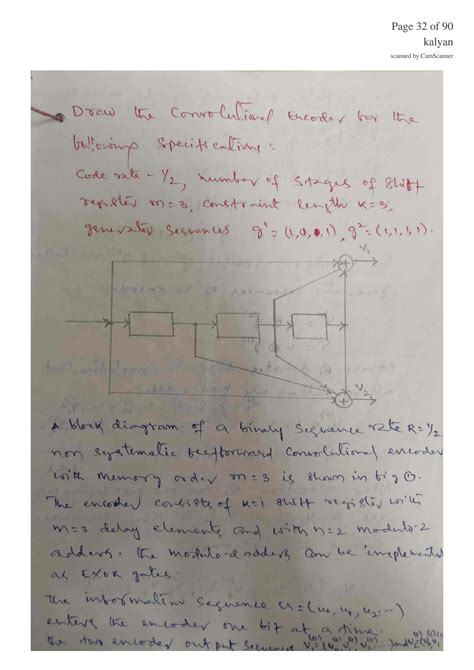 Page 32 of 90
kalyan
scanned by CamScanner
Draw the Convolutional Encoder for the
following Specifications:
Code rate - 1/2, number of stages of shift
register m = 3, constraint length K = 3,
generator sequences g¹ = (1,0,0,1), g² = (1,1,1,1).
V₁
+
V₂
+
A block diagram of a binary sequence rate R = 1/2
non systematic feedforward convolutional encoder
with memory order m = 3 is shown in fig ①.
The encoder consists of K=1 shift register with
m = 3 delay elements and with n = 2 modulo-2
adders. The modulo-2 adders can be implemented
as EXOR gates.
The information sequence u = (u₀, u₁, u₂ ...)
enters the encoder one bit at a time.
the two encoder output sequence